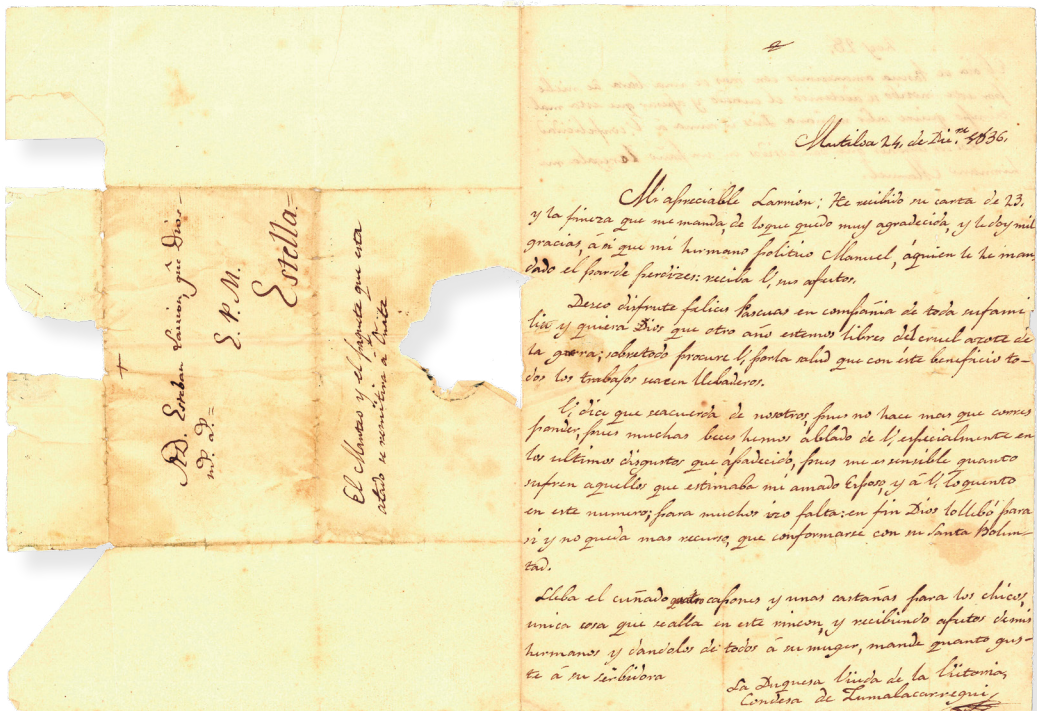 Mutiloa 24, de Dic.re 1836.
Mi apreciable Larrion; He recibido su carta de 23,
y la fineza que me manda, de loque quedo muy agradecida, y le doy mil
gracias, á si que mi hermano politico Manuel, áquien le he man
dado el par de perdizes: reciba V, sus afectos.
Deseo disfrute felices Pascuas en compañia de toda sufami
lia y quiera Dios que otro año estemos libres del cruel azote de
la gerra; sobretodo procure V, porla salud que con éste beneficio to-
dos los trabajos seacen llebaderos.
V, dice que seacuerda de nosotros, pues no hace mas que corres
ponder, pues muchas beces hemos áblado de V, especialmente en
los ultimos disgustos que ápadecido, pues me es sensible quanto
sufren aquellos que estimaba mi amado Esposo, y á V, loquento
en este numero; para muchos izo falta: en fin Dios lollebó para
si y no queda mas recurso, que conformarse con su Santa Bolun-
tad.
Lleba el cuñado quatro capones y unas castañas para los chicos,
unica cosa que sealla en este rincon, y recibiendo afectos demis
hermanos y dandolos de todos á su muger, mande quanto gus-
te á su serbidora
La Duquesa Viuda de la Vitoria,
Condesa de Zumalacarregui
+
A D. Esteban Larrion, que Dios-
m.s a.s =
E. P. M.
Estella=
El Manteo y el paquete que esta
atado se remitira á Oñate